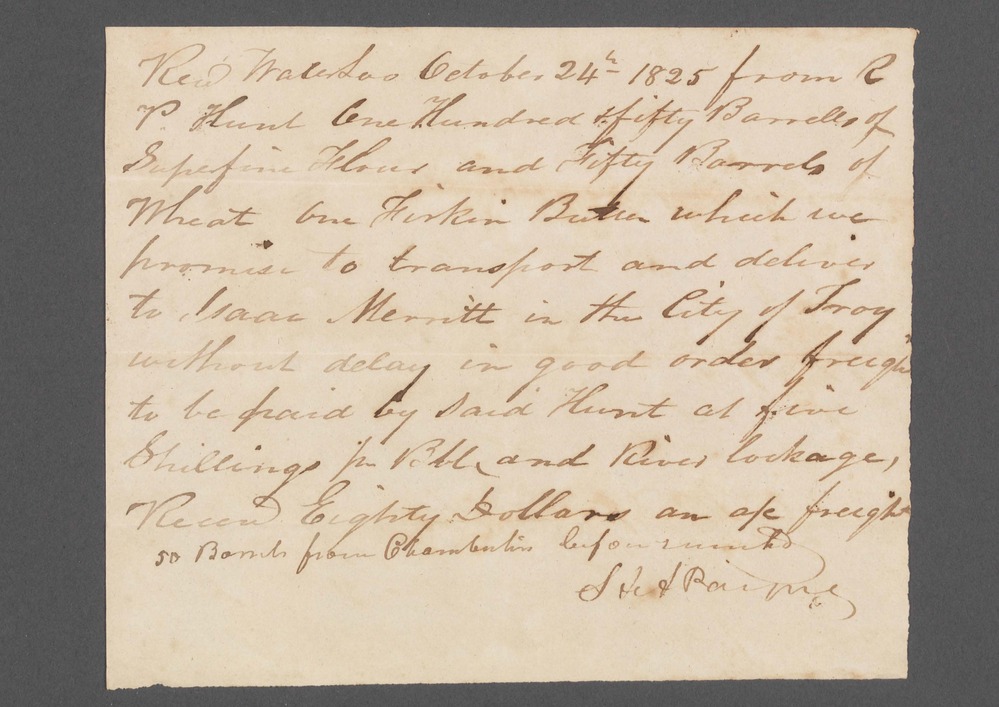 Recd Waterloo October 24th 1825 from R
P. Hunt One Hundred & fifty Barrells of
Superfine Flour and Fifty Barrels of
Wheat One Firkin Butter which we
promise to transport and deliver
to Isaac Merritt in the City of Troy
without delay in good order freight
to be paid by said Hunt at five
Shillings pr Bbl, and River lockage,
Recevd Eighty Dollars on a/c freight
50 Barrels from Chamberlins before
S & S Payne